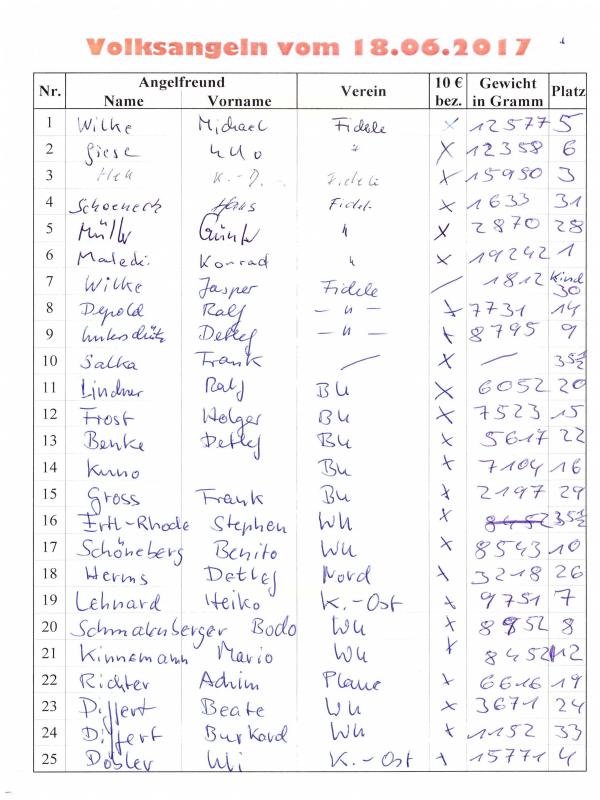 Volksangeln vom 18.06.2017
Nr. Angelfreund Verein 10 € bez. Gewicht in Gramm Platz
Name Vorname
1 Wilke Michael Fidele X 12577 5
2 Giese Udo " X 12358 6
3 K.-D. Fideli X 15950 3
4 Schoeneck Hans Fidel. X 1633 31
5 Müller Günter " X 2870 28
6 Maledki Konrad " X 19242 1
7 Wilke Jasper Fidele / 1812 Kind 30
8 Depold Ralf — " — X 7731 14
9 Detlef — " — X 8795 9
10 Salka Frank — X — 35½
11 Lindner Ralf BU X 6052 20
12 Frost Holger BU X 7523 15
13 Benke Detlef BU X 5617 22
14 Kuno BU X 7104 16
15 Gross Frank BU X 2197 29
16 Ertl-Rhode Stephen WU X 8452 35½
17 Schöneberg Benito WU X 8543 10
18 Herms Detlef Nord X 3218 26
19 Lehnard Heiko K.-Ost X 9751 7
20 Schmalenberger Bodo WU X 8952 8
21 Kinnemann Mario WU X 8452 12
22 Richter Achim Plane X 6616 19
23 Differt Beate WU X 3671 24
24 Differt Burkard WU X 1152 33
25 Döbler Uli K.-Ost X 15771 4